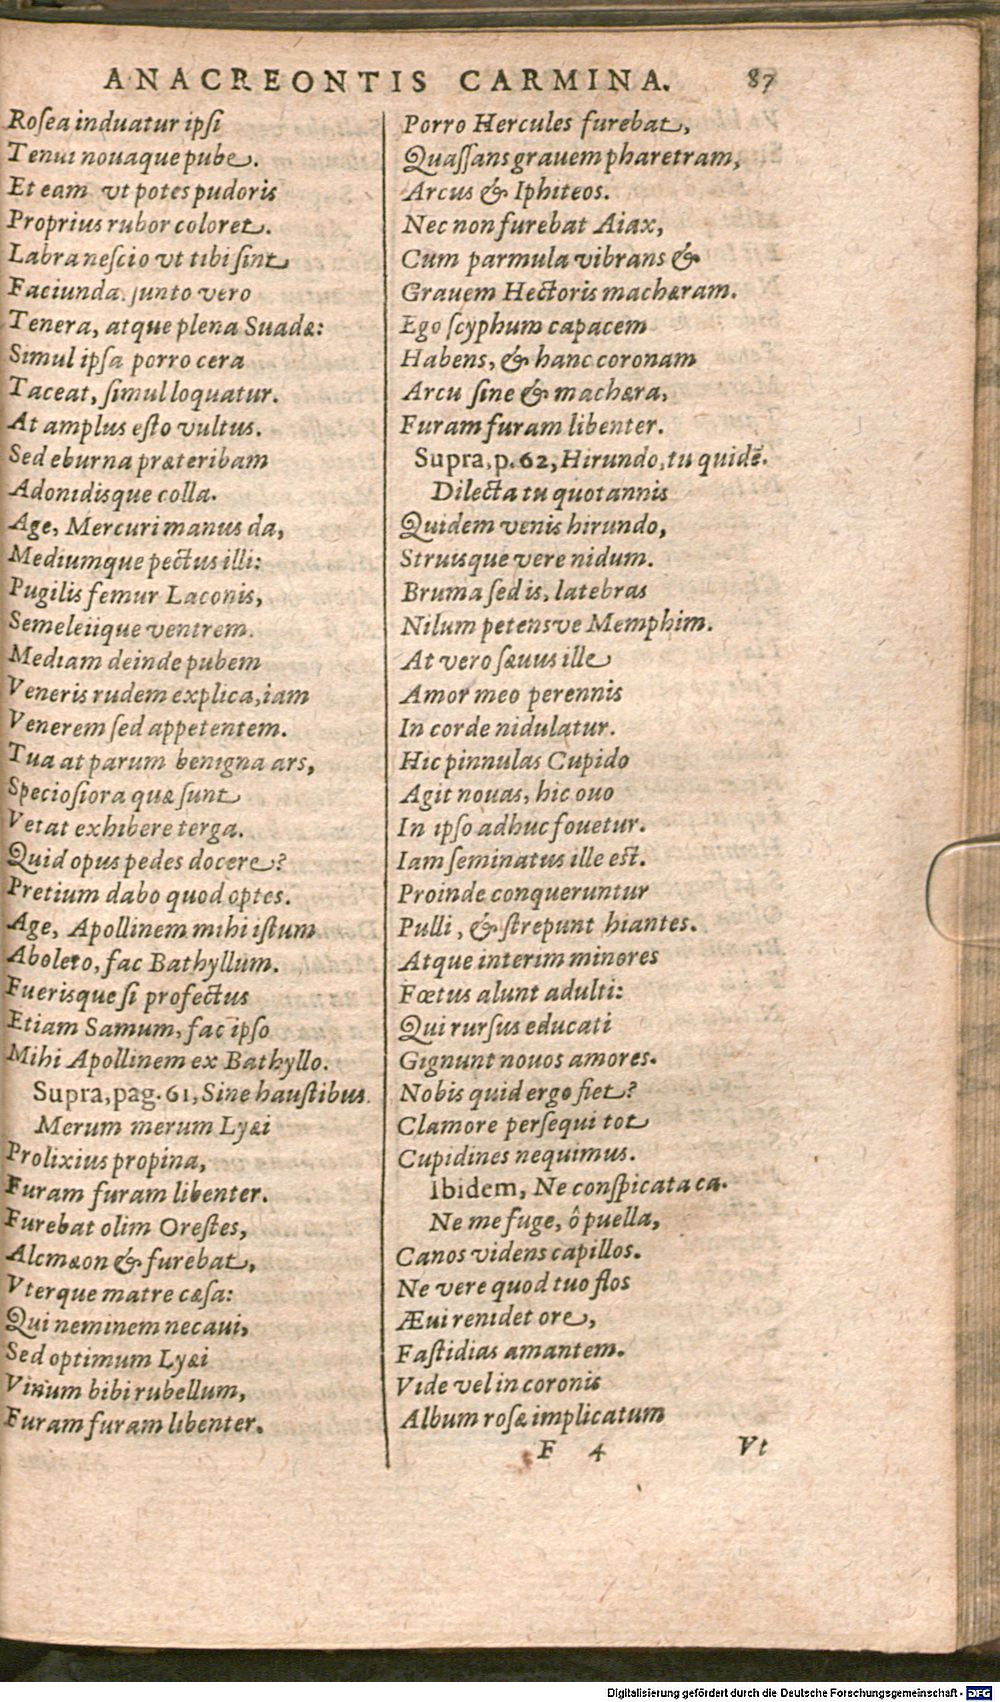 ANACREONTIS CARMINA. 87
Roſea induatur ipſi
Tenui nouaque pube.
Et eam vt potes pudoris
Proprius rubor coloret.
Labra neſcio vt tibi ſint
Faciunda. junto vero
Tenera, atque plena Suadæ:
Simul ipſa porro cera
Taceat, ſimul loquatur.
At amplus eſto vultus.
Sed eburna præteribam
Adonidisque colla.
Age, Mercuri manus da,
Mediumque pectus illi:
Pugilis femur Laconis,
Semeleiique ventrem.
Mediam deinde pubem
Veneris rudem explica, iam
Venerem ſed appetentem.
Tua at parum benigna ars,
Specioſiora quæ ſunt
Vetat exhibere terga.
Quid opus pedes docere?
Pretium dabo quod optes.
Age, Apollinem mihi iſtum
Aboleto, fac Bathyllum.
Fuerisque ſi profectus
Etiam Samum, fac ipſo
Mihi Apollinem ex Bathyllo.
Supra, pag. 61, Sine hauſtibus.
Merum merum Lyæi
Prolixius propina,
Furam furam libenter.
Furebat olim Oreſtes,
Alcmæon & furebat,
Vterque matre cæſa:
Qui neminem necaui,
Sed optimum Lyæi
Vinum bibi rubellum,
Furam furam libenter.
Porro Hercules furebat,
Quaſſans grauem pharetram,
Arcus & Iphiteos.
Nec non furebat Aiax,
Cum parmula vibrans &
Grauem Hectoris machæram.
Ego ſcyphum capacem
Habens, & hanc coronam
Arcu ſine & machæra,
Furam furam libenter.
Supra, p. 62, Hirundo, tu quidē.
Dilecta tu quotannis
Quidem venis hirundo,
Struisque vere nidum.
Bruma ſed is, latebras
Nilum petensve Memphim.
At vero ſæuus ille
Amor meo perennis
In corde nidulatur.
Hic pinnulas Cupido
Agit nouas, hic ouo
In ipſo adhuc fouetur.
Iam ſeminatus ille est.
Proinde conqueruntur
Pulli, & ſtrepunt hiantes.
Atque interim minores
Fœtus alunt adulti:
Qui rurſus educati
Gignunt nouos amores.
Nobis quid ergo fiet?
Clamore perſequi tot
Cupidines nequimus.
Ibidem, Ne conſpicata ca.
Ne me fuge, ô puella,
Canos videns capillos.
Ne vere quod tuo flos
Æui renidet ore,
Faſtidias amantem.
Vide vel in coronis
Album roſæ implicatum
F 4 Vt
Digitalisierung gefördert durch die Deutsche Forschungsgemeinschaft - DFG